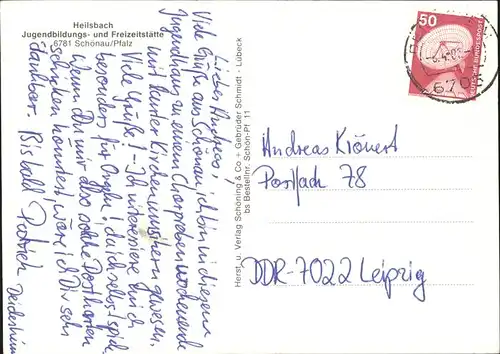 Heilsbach
Jugendbildungs- und Freizeitstätte
6781 Schönau/Pfalz
Lieber Andreas!
Viele Grüße aus Schönau, ich bin in diesem
Jugendhaus zu einem Chorprobenwochenende
mit bunter Kirchenmusik gewesen.
Viele Grüße! - Ich interessiere mich
besonders für Orgeln! da ich selbst spiel.
Wenn Du mir also solche Postkarten
schicken könntest, wäre ich Dir sehr
dankbar. Bis bald Patrick
Herst. u. Verlag Schöning & Co + Gebrüder Schmidt - Lübeck
bs Bestellnr. Schön-Pf 11
50
DEUTSCHE BUNDESPOST
670
Andreas Krönert
Postfach 78
DDR-7022 Leipzig